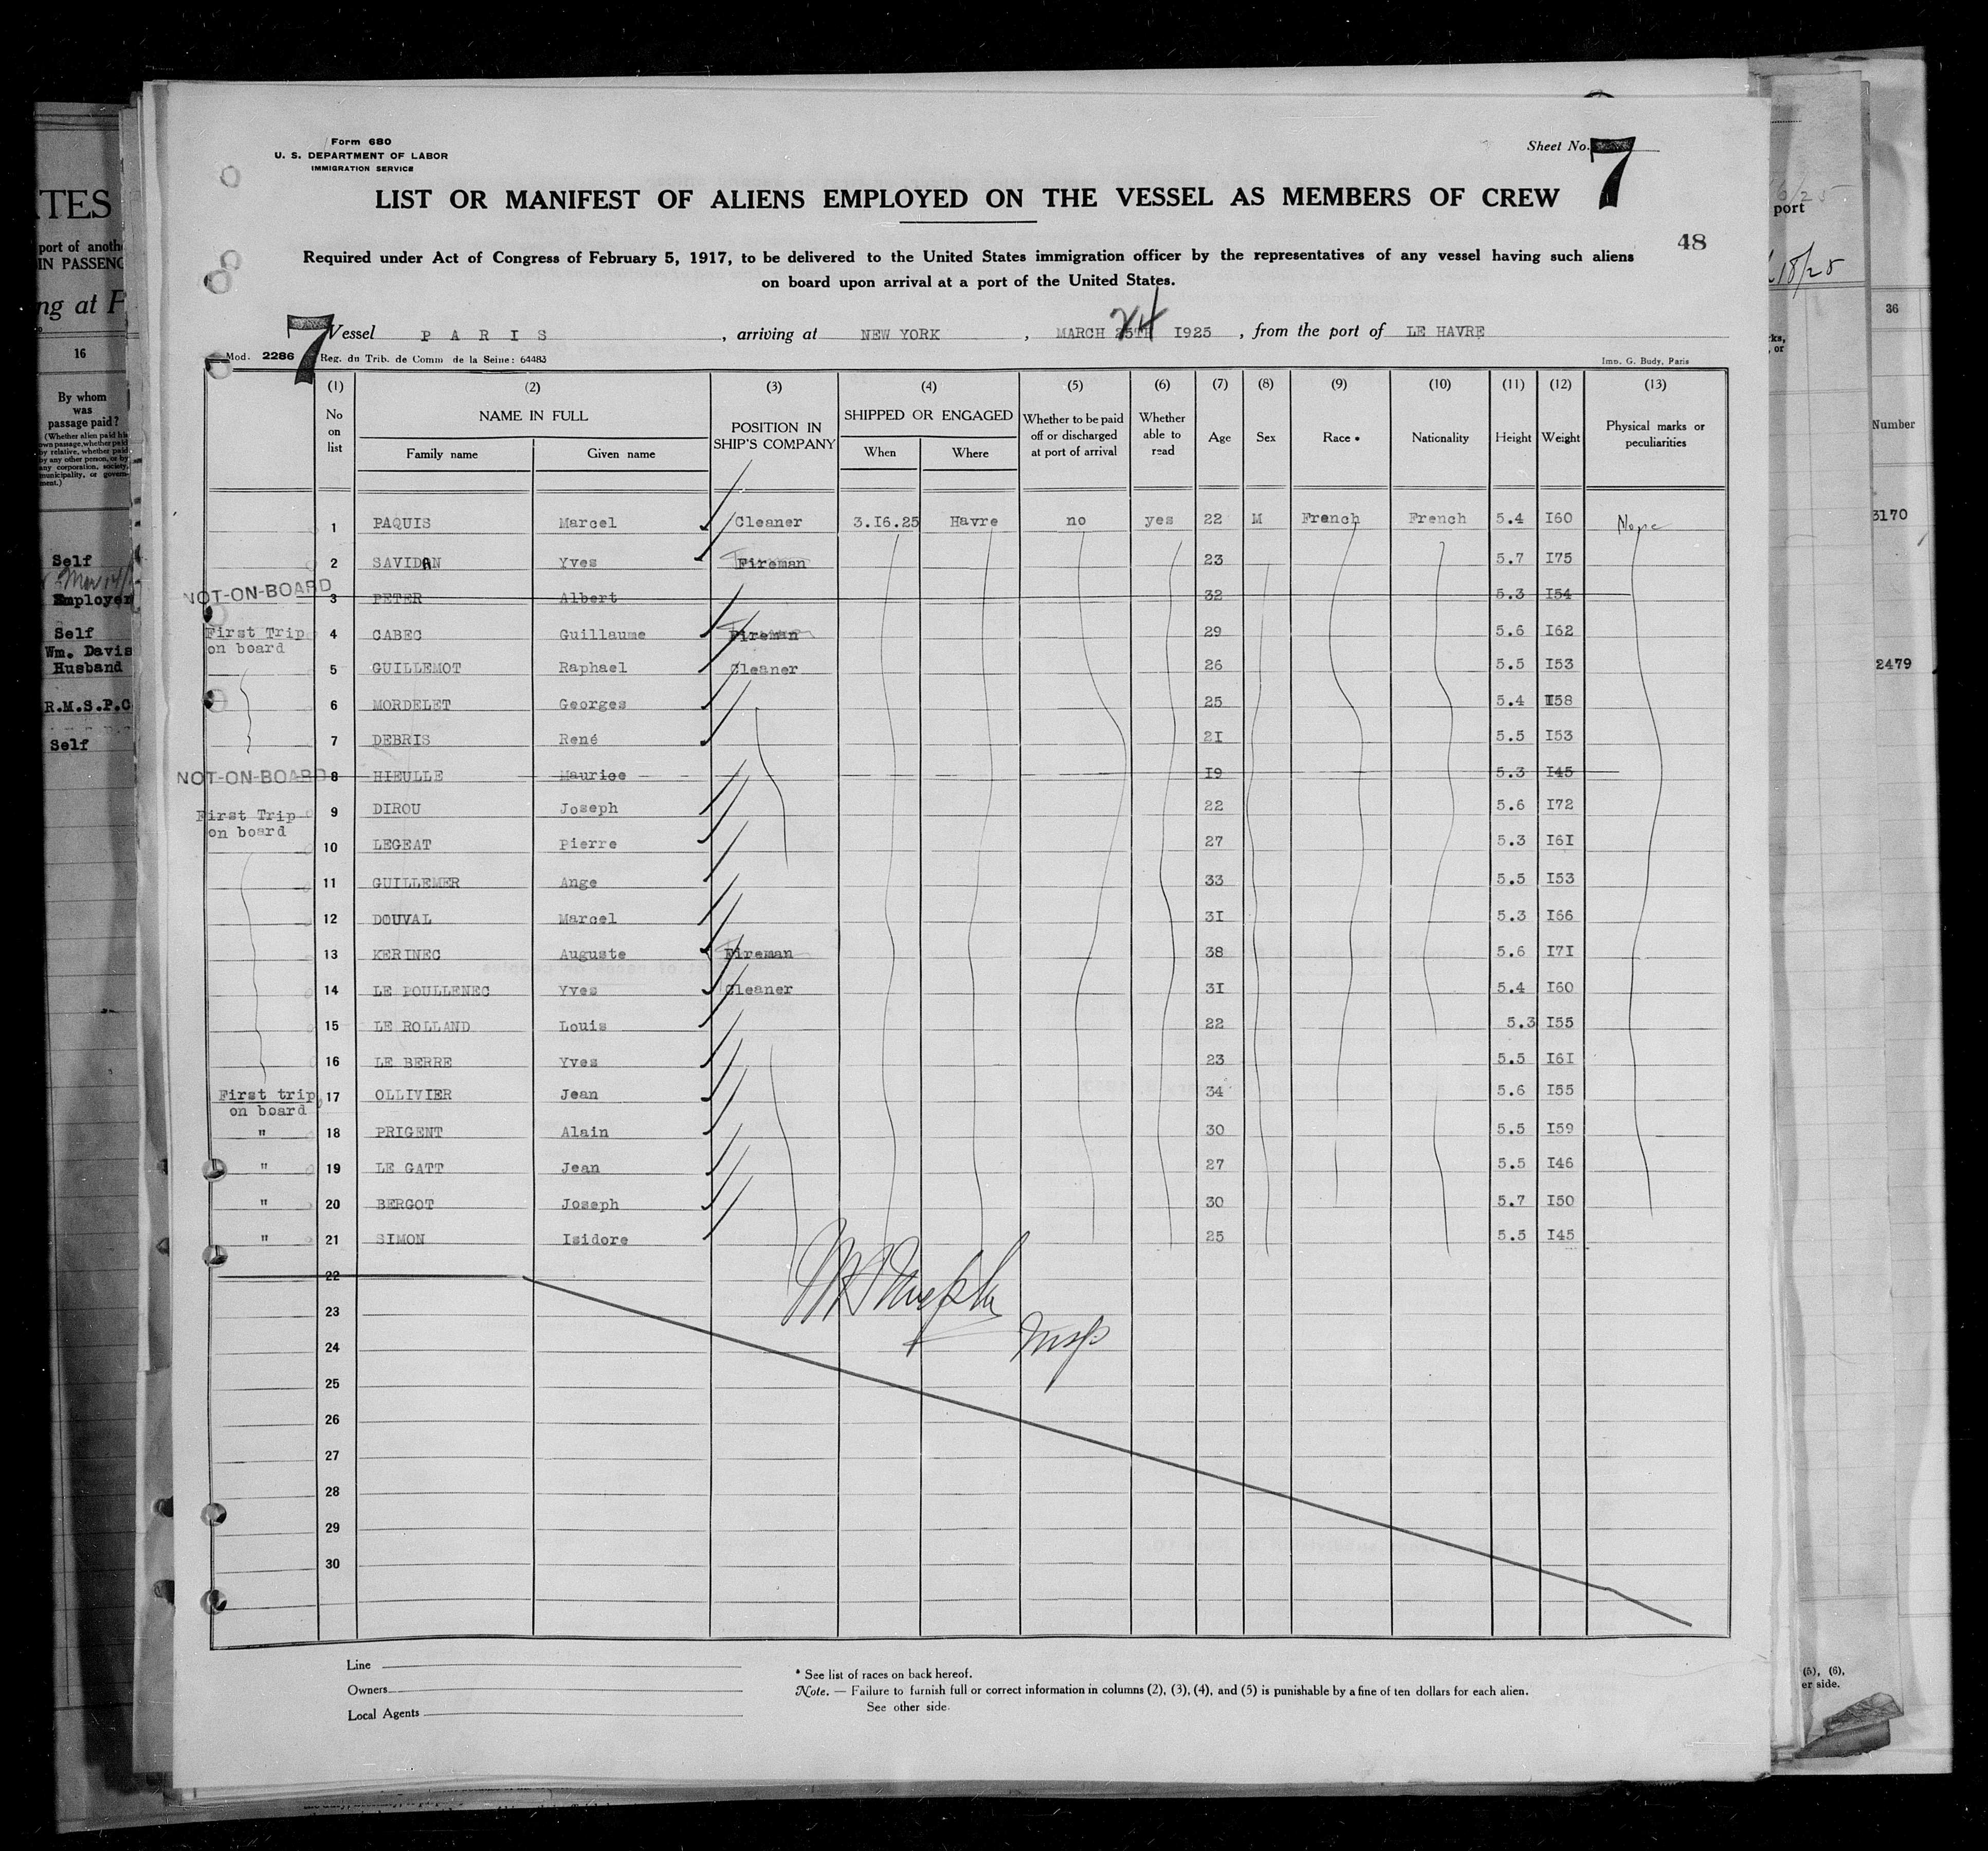 Form 680
U. S. DEPARTMENT OF LABOR
IMMIGRATION SERVICE
Sheet No. 7
LIST OR MANIFEST OF ALIENS EMPLOYED ON THE VESSEL AS MEMBERS OF CREW
48
Required under Act of Congress of February 5, 1917, to be delivered to the United States immigration officer by the representatives of any vessel having such aliens
on board upon arrival at a port of the United States.
7
Vessel PARIS, arriving at NEW YORK, MARCH 25TH 24 1925, from the port of LE HAVRE
Mod. 2286 Reg. du Trib. de Comm de la Seine: 64483
Imp. G. Budy, Paris
(1) (2) (3) (4) (5) (6) (7) (8) (9) (10) (11) (12) (13)
No on list
NAME IN FULL
Family name Given name
POSITION IN SHIP'S COMPANY
SHIPPED OR ENGAGED
When Where
Whether to be paid off or discharged at port of arrival
Whether able to read
Age Sex Race * Nationality Height Weight
Physical marks or peculiarities
1 PAQUIS Marcel Cleaner 3.I6.25 Havre no yes 22 M French French 5.4 I60 None
2 SAVIDAN Yves Fireman 23 5.7 I75
NOT-ON-BOARD 3 PETER Albert 32 5.3 I54
First Trip on board 4 CABEC Guillaume Fireman 29 5.6 I62
5 GUILLEMOT Raphael Cleaner 26 5.5 I53
6 MORDELET Georges 25 5.4 I58
7 DEBRIS René 2I 5.5 I53
NOT-ON-BOARD 8 HIEULLE Maurice I9 5.3 I45
First Trip on board 9 DIROU Joseph 22 5.6 I72
10 LEGEAT Pierre 27 5.3 I6I
11 GUILLEMER Ange 33 5.5 I53
12 DOUVAL Marcel 3I 5.3 I66
13 KERINEC Auguste Fireman 38 5.6 I7I
14 LE POULLENEC Yves Cleaner 3I 5.4 I60
15 LE ROLLAND Louis 22 5.3 I55
16 LE BERRE Yves 23 5.5 I6I
First trip on board 17 OLLIVIER Jean 34 5.6 I55
" 18 PRIGENT Alain 30 5.5 I59
" 19 LE GATT Jean 27 5.5 I46
" 20 BERGOT Joseph 30 5.7 I50
" 21 SIMON Isidore 25 5.5 I45
22
23
24
25
26
27
28
29
30
Line
Owners
Local Agents
* See list of races on back hereof.
Note. — Failure to furnish full or correct information in columns (2), (3), (4), and (5) is punishable by a fine of ten dollars for each alien.
See other side.
TES
port of anoth
IN PASSENG
ng at F
16
By whom
was
passage paid?
(Whether alien paid his
own passage, whether paid
by relative, whether paid
by any other person, or by
any corporation, society,
municipality, or govern-
ment.)
Self
Employer
Self
Wm. Davis
Husband
R.M.S.P.C
Self
port
18/25
36
Number
3170
2479
(5), (6),
er side.